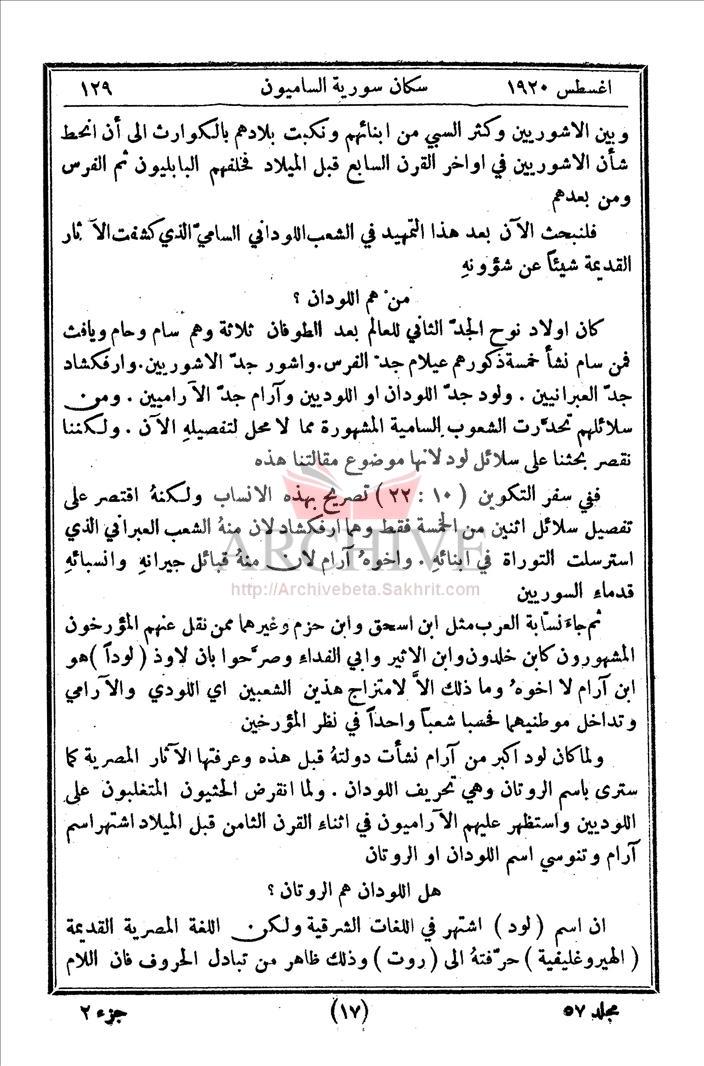 اغسطس ١٩٢٠ سكان سورية الساميون ١٢٩
وبين الاشوريين وكثر السبي من ابنائهم ونكبت بلادهم بالكوارث الى أن انحط
شأن الاشوريين في اواخر القرن السابع قبل الميلاد فخلفهم البابليون ثم الفرس
ومن بعدهم
فلنبحث الآن بعد هذا التمهيد في الشعب اللوداني الساميّ الذي كشفت الآثار
القديمة شيئاً عن شؤونهِ
من هم اللودان ؟
كان اولاد نوح الجدّ الثاني للعالم بعد الطوفان ثلاثة وهم سام وحام ويافث
فمن سام نشأ خمسة ذكورهم عيلام جدّ الفرس. واشور جدّ الاشوريين. وارفكشاد
جدّ العبرانيين . ولود جدّ اللودان او اللوديين وآرام جدّ الآراميين . ومن
سلائلهم تحدَّرت الشعوب السامية المشهورة مما لا محل لتفصيلهِ الآن . ولكننا
نقصر بحثنا على سلائل لود لانها موضوع مقالتنا هذه
ففي سفر التكوين ( ١٠ : ٢٢ ) تصريح بهذه الانساب ولكنهُ اقتصر على
تفصيل سلائل اثنين من الخمسة فقط وهما ارفكشاد لان منهُ الشعب العبراني الذي
استرسلت التوراة في ابنائهِ . واخوهُ آرام لان منهُ قبائل جيرانهِ وانسبائهِ
قدماء السوريين
ثم جاء نسّابة العرب مثل ابن اسحق وابن حزم وغيرهما ممن نقل عنهم المؤرخون
المشهورون كابن خلدون وابن الاثير وابي الفداء وصرَّحوا بان لاوذ ( لوداً ) هو
ابن آرام لا اخوهُ وما ذلك الاَّ لامتزاج هذين الشعبين اي اللودي والآرامي
وتداخل موطنيهما فحسبا شعباً واحداً في نظر المؤرخين
ولما كان لود اكبر من آرام نشأت دولتهُ قبل هذه وعرفتها الآثار المصرية كما
سترى باسم الروتان وهي تحريف اللودان . ولما انقرض الحثيون المتغلبون على
اللوديين واستظهر عليهم الآراميون في اثناء القرن الثامن قبل الميلاد اشتهر اسم
آرام وتنوسي اسم اللودان او الروتان
هل اللودان هم الروتان ؟
ان اسم ( لود ) اشتهر في اللغات الشرقية ولكن اللغة المصرية القديمة
( الهيروغليفية ) حرّفتهُ الى ( روت ) وذلك ظاهر من تبادل الحروف فان اللام
مجلد ٥٧ (١٧) جزء ٢
ARCHIVE
http://Archivebeta.Sakhrit.com